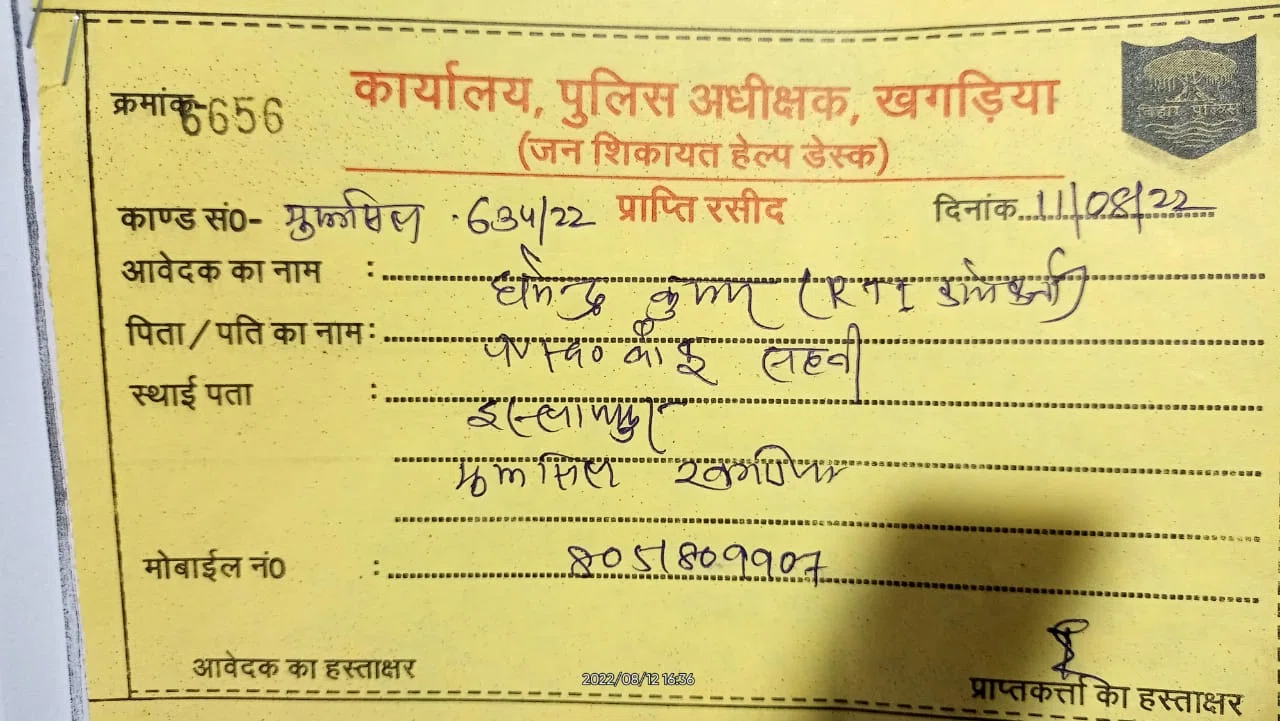 क्रमांक- 6656
कार्यालय, पुलिस अधीक्षक, खगड़िया
(जन शिकायत हेल्प डेस्क)
बिहार पुलिस
काण्ड सं0- मुफ्फसिल 634/22 प्राप्ति रसीद दिनांक 11/08/22
आवेदक का नाम : धर्मेन्द्र कुमार (RTI कार्यकर्ता)
पिता / पति का नाम : सहनी
स्थाई पता :
मुफसिल खगड़िया
मोबाईल नं0 : 8051809907
आवेदक का हस्ताक्षर
2022/08/12 16:36
प्राप्तकर्त्ता का हस्ताक्षर